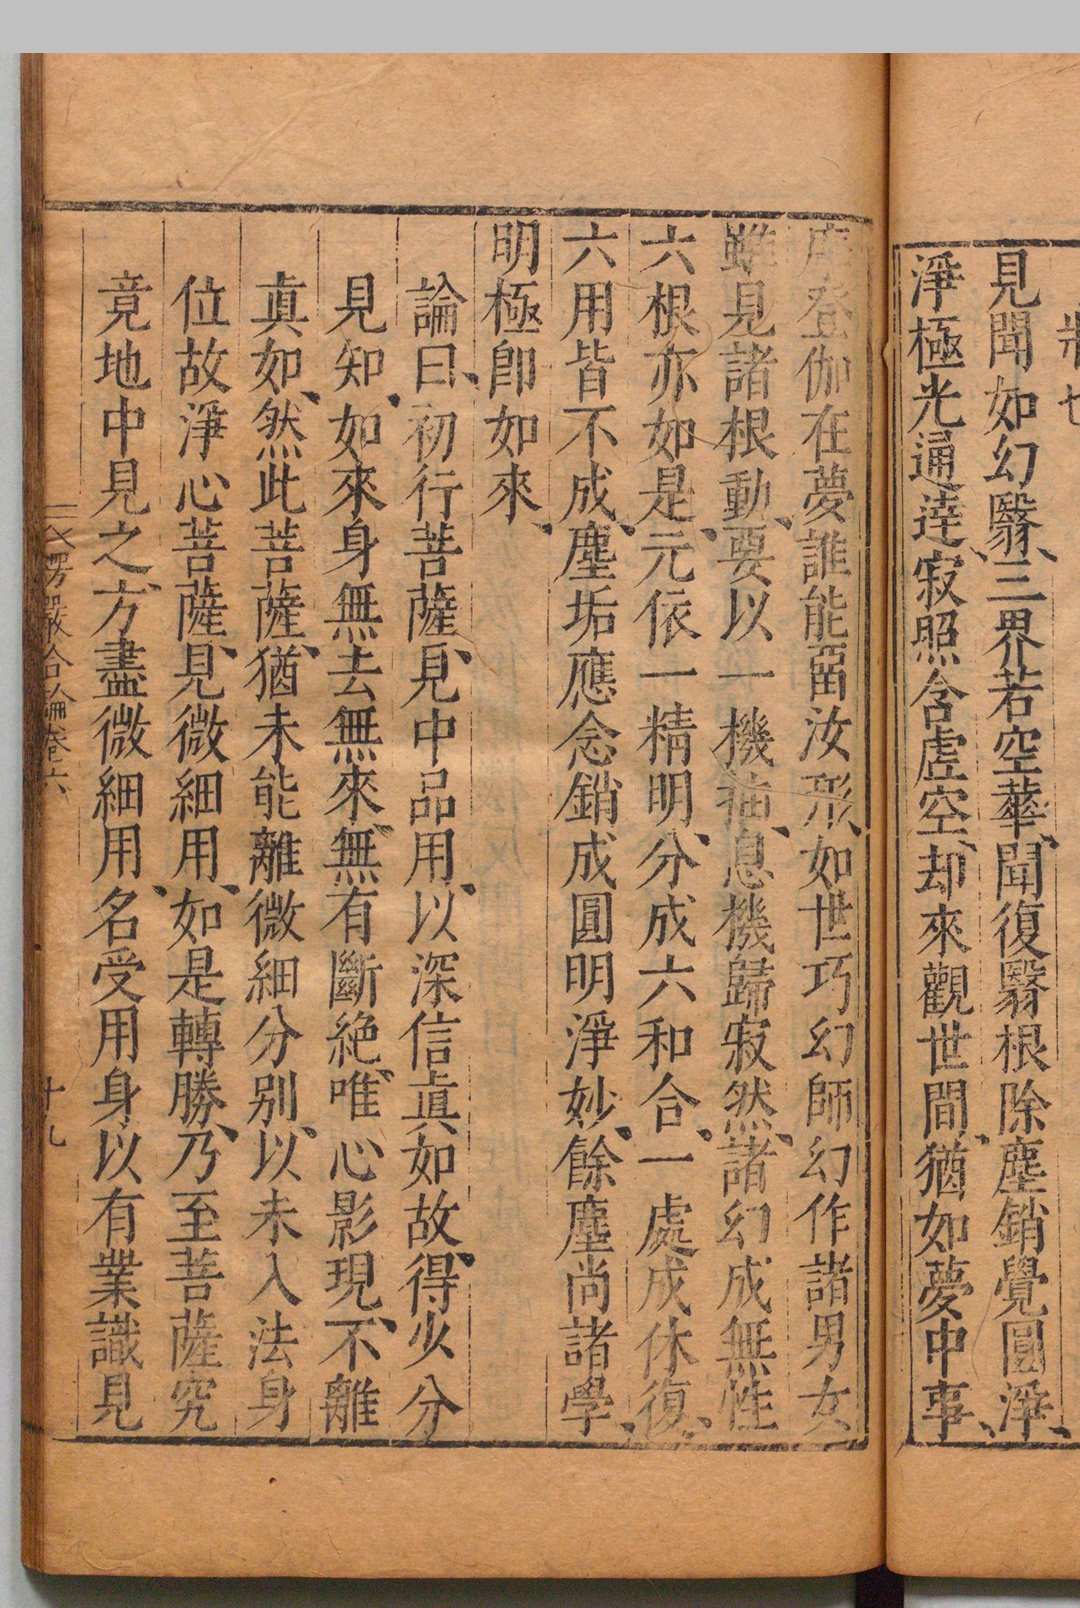 也
見聞如幻翳、三界若空華、聞復翳根除、塵銷覺圓淨、
淨極光通達、寂照含虛空、却來觀世間、猶如夢中事、
摩登伽在夢誰能畱汝形、如世巧幻師幻作諸男女
雖見諸根動、要以一機抽、息機歸寂然、諸幻成無性
六根亦如是、元依一精明、分成六和合、一處成休復、
六用皆不成、塵垢應念銷成圓明淨妙、餘塵尚諸學、
明極卽如來、
論曰、初行菩薩、見中品用、以深信眞如故、得少分
見知、如來身無去無來、無有斷絶、唯心影現、不離
眞如、然此菩薩、猶未能離微細分別、以未入法身
位故淨心菩薩、見微細用、如是轉勝、乃至菩薩究
竟地中見之、方盡微細用、名受用身以有業識見
楞嚴合論卷六
十九